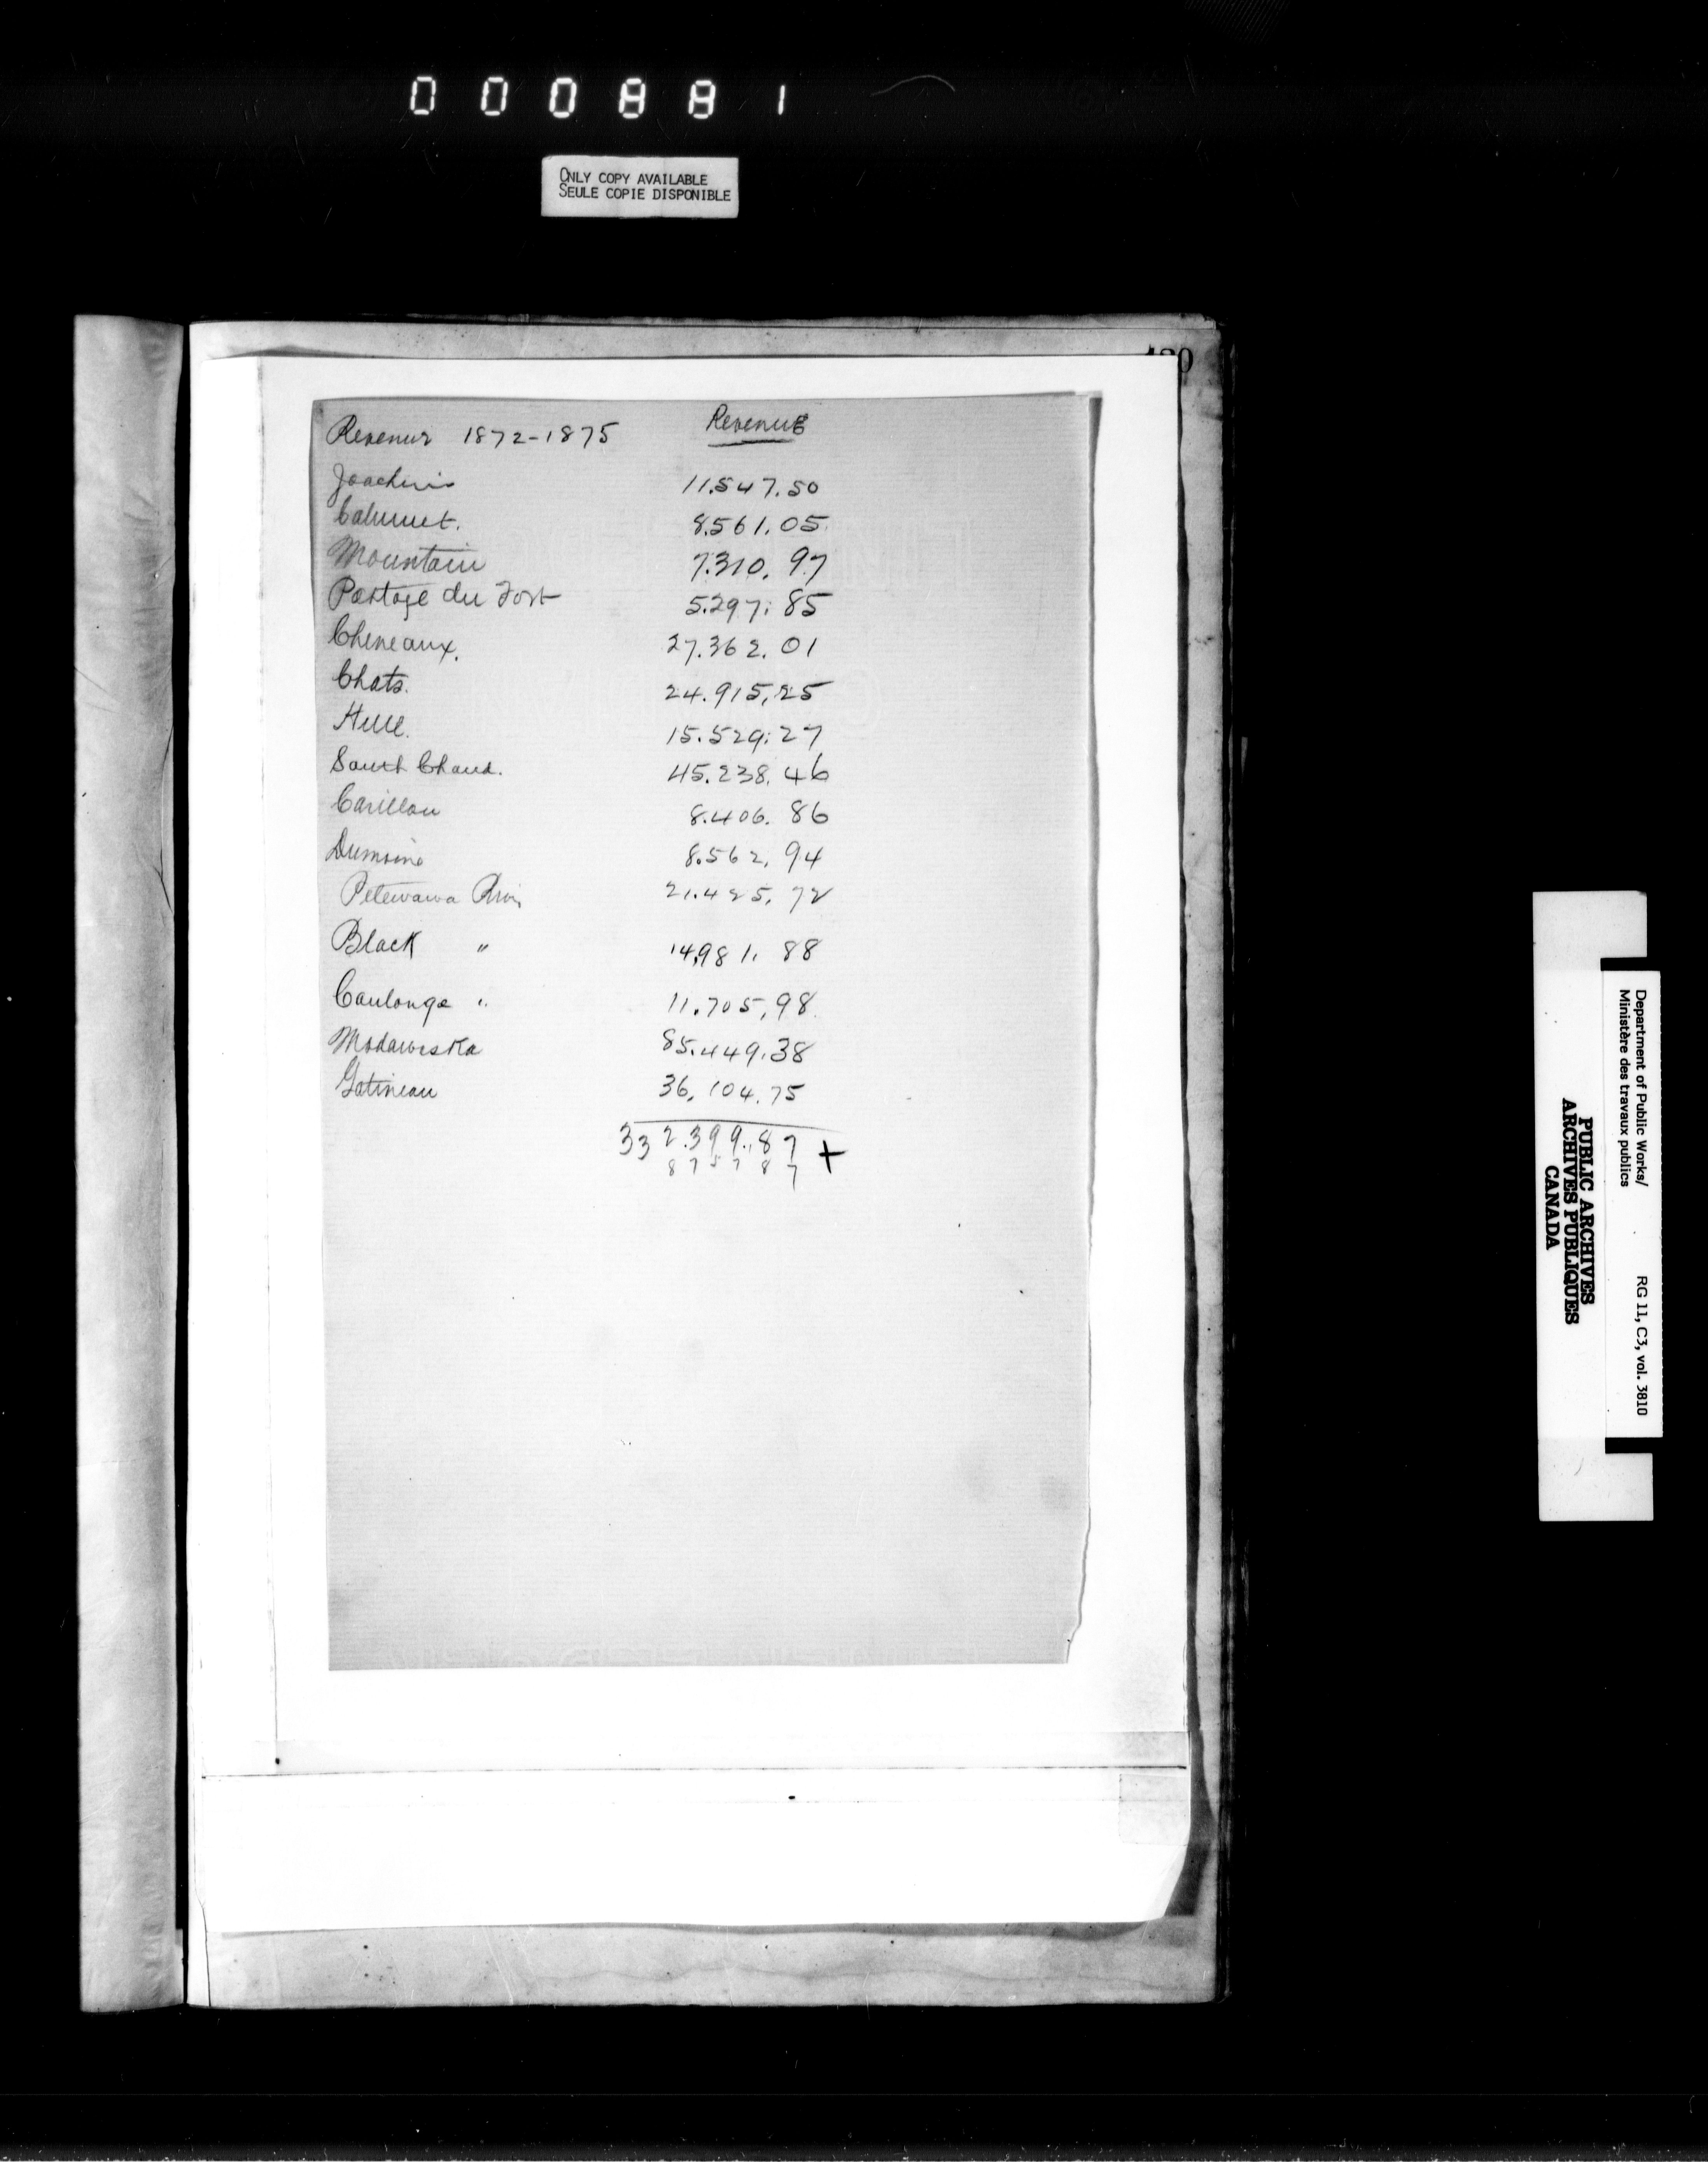 000881
ONLY COPY AVAILABLE
SEULE COPIE DISPONIBLE
Revenue 1872-1875 Revenue
Joachim 11.547.50
Calumet. 8.561.05
Mountain 7.310.97
Portage du Fort 5.297.85
Cheneaux. 27.362.01
Chats. 24.915.25
Hull. 15.529.27
South Chaud. 45.238.46
Carillon 8.406.86
Dumoine 8.562.94
Petewawa River 21.425.72
Black " 14,981.88
Coulonge " 11.705,98
Madawaska 85.449.38
Gatineau 36,104.75
332.399.87 +
8 7 5 7 8 7
Department of Public Works/ RG 11, C3, vol. 3810
Ministère des travaux publics
PUBLIC ARCHIVES
ARCHIVES PUBLIQUES
CANADA